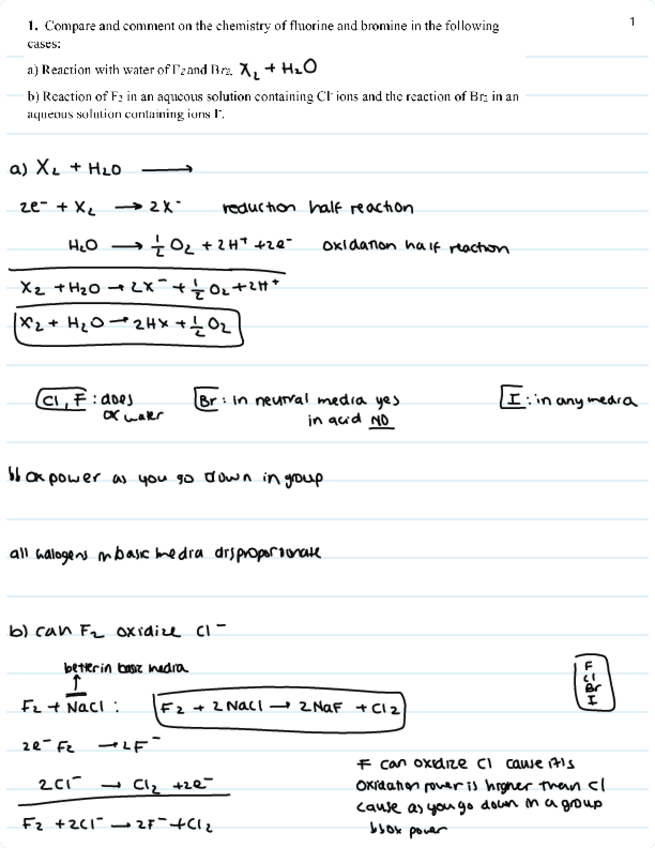 1
1. Compare and comment on the chemistry of fluorine and bromine in the following
cases:
a) Reaction with water of F₂ and Br₂. X₂ + H₂O
b) Reaction of F₂ in an aqueous solution containing Cl⁻ ions and the reaction of Br₂ in an
aqueous solution containing ions I⁻.
a) X₂ + H₂O ⟶
2e⁻ + X₂ → 2X⁻ reduction half reaction
H₂O → ½ O₂ + 2H⁺ + 2e⁻ oxidation half reaction
X₂ + H₂O → 2X⁻ + ½ O₂ + 2H⁺
X₂ + H₂O → 2HX + ½ O₂
Cl, F : does
ox water
Br : in neutral media yes
in acid NO
I : in any media
↓↓ ox power as you go down in goup
all halogens in basic media disproportionate
b) can F₂ oxidize Cl⁻
better in basic media
↑
F₂ + NaCl : F₂ + 2 NaCl → 2 NaF + Cl₂
F
Cl
Br
I
2e⁻ F₂ → 2F⁻
2Cl⁻ → Cl₂ + 2e⁻
F₂ + 2Cl⁻ → 2F⁻ + Cl₂
F can oxidize Cl cause its
oxidation power is higher than Cl
cause as you go down in a group
↓↓ ox power